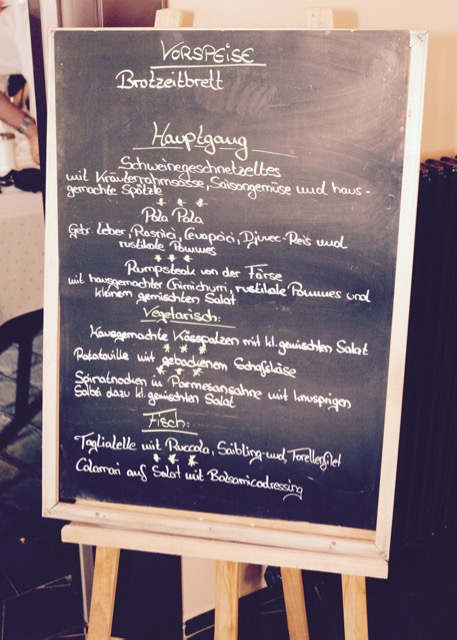 VORSPEISE
Brotzeitbrett
Hauptgang
Schweinegeschnetzeltes
mit Kräuterrahmsosse, Saisongemüse und haus-
gemachte Spätzle
Pola Pola
Gebr. Leber, Rasnici, Cevapcici, Djuvec-Reis und
rustikale Pommes
Rumpsteak von der Färse
mit hausgemachter Chimichurri, rustikale Pommes und
kleinem gemischten Salat
Vegetarisch:
Hausgemachte Kässpatzen mit kl. gemischten Salat
Ratatouille mit gebackenem Schafskäse
in Parmesansahne mit knusprigen
dazu kl. gemischten Salat
Fisch:
Tagliatelle mit Ruccola, Saibling und Forellenfilet
Calamari auf Salat mit Balsamicodressing